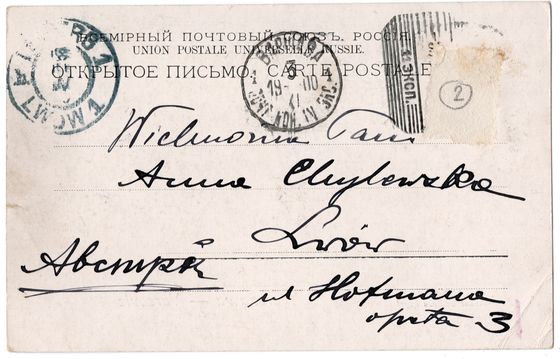 ВСЕМІРНЫЙ ПОЧТОВЫЙ СОЮЗЪ. РОССІЯ.
UNION POSTALE UNIVERSELLE. RUSSIE.
ОТКРЫТОЕ ПИСЬМО. CARTE POSTALE
4 ЭКСП.
2
Wielmożna Pani
Anna Chylewska
Lwów
Австрія
ul Hofmana
3